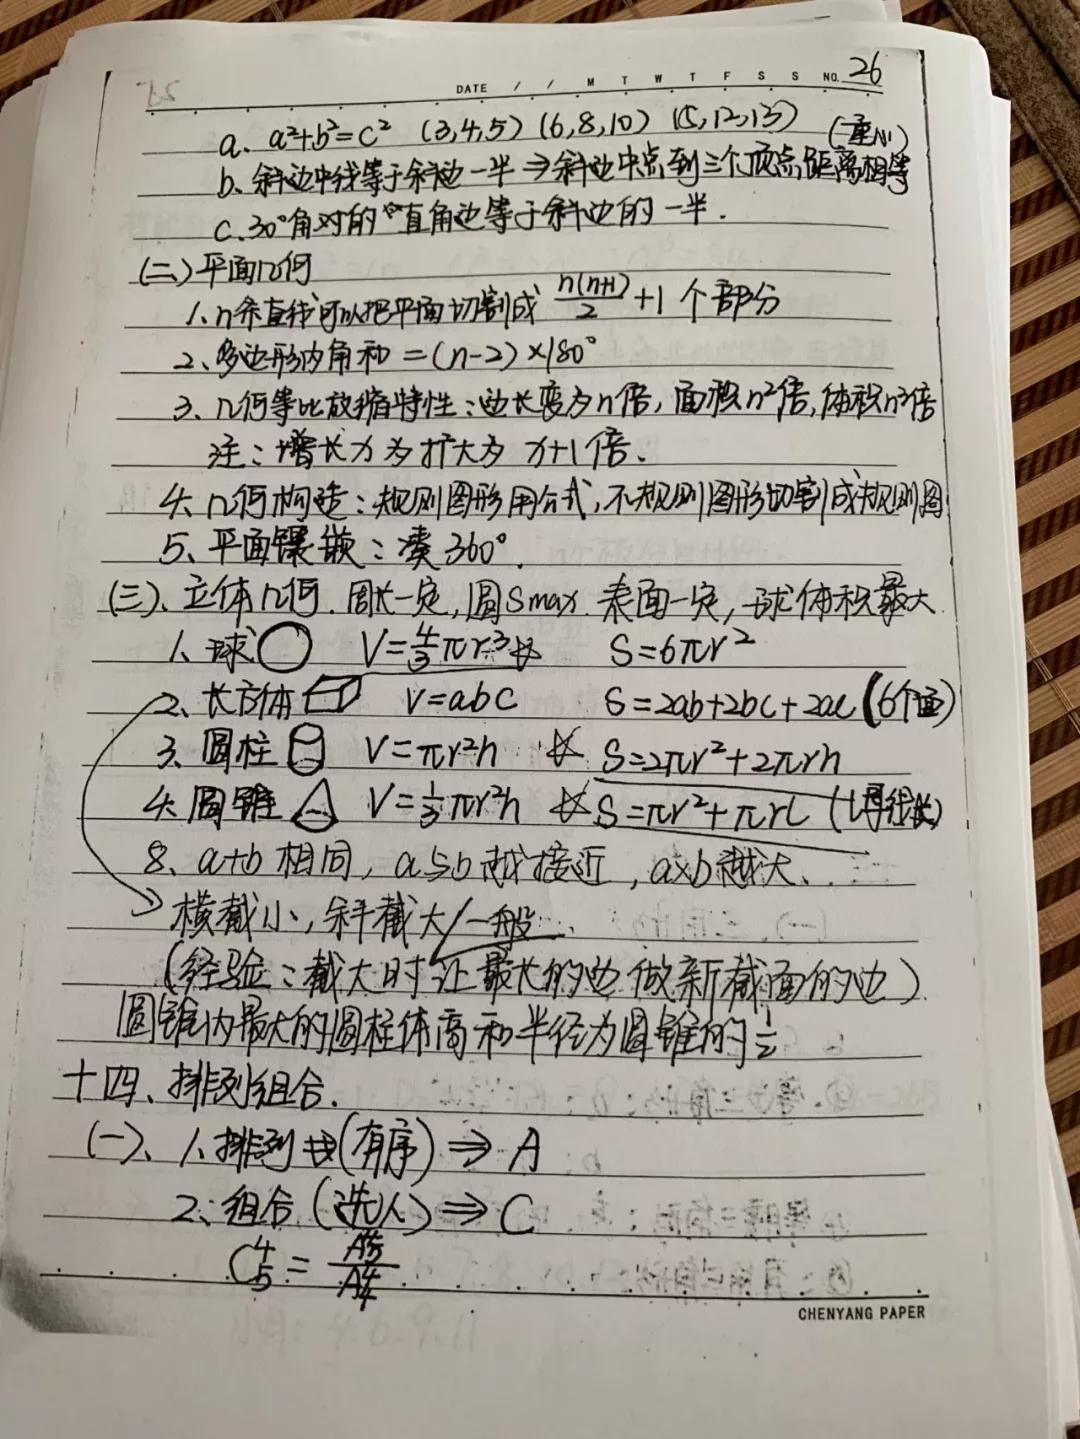 DATE / / M T W T F S S NO. 26
a. a²+b²=c² (3,4,5) (6,8,10) (5,12,13)
b. 斜边中线等于斜边一半⇒斜边中点到三个顶点距离相等
c. 30°角对的直角边等于斜边的一半.
(二)平面几何
1、n条直线可以把平面切割成 n(n+1)/2 +1 个部分
2、多边形内角和=(n-2)×180°
3、几何等比放缩特性:边长变为n倍,面积n²倍,体积n³倍
注:增长x为扩大为 x+1倍.
4、几何构造:规则图形用公式,不规则图形切割成规则图
5、平面镶嵌:凑360°.
(三)、立体几何.周长一定,圆Smax.表面一定,球体积最大
1、球 V=4/3πr³ S=6πr²
2、长方体 V=abc S=2ab+2bc+2ac (6个面)
3、圆柱 V=πr²h S=2πr²+2πrh
4、圆锥 V=1/3πr²h S=πr²+πrL (L母线长)
8、a+b相同,a与b越接近,a×b越大、
横截小,斜截大/一般
(经验:截大时让最长的边做新截面的边)
圆锥内最大的圆柱体高和半径为圆锥的1/2
十四、排列组合.
(一)、1、排列(有序)⇒A
2、组合(选人)⇒C
CHENYANG PAPER